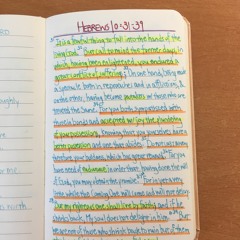 HEBREWS 10:31-39
31 It is a fearful thing to fall into the hands of the
living God. 32 But call to mind the former days, in
which, having been enlightened, you endured a
great conflict of suffering; 33 On one hand, being made
a spectacle both in reproaches and in afflictions, &
on the other, having become partakers w/ those who were
treated the same. 34 For you both sympathized with
those in bonds and accepted w/ joy the plundering
of your possessions, knowing that you yourselves have a
better possession and one that abides. 35 Do not cast away
therefore your boldness, which has great reward. 36 For you
have need of endurance, in order that, having done the will
of God, you may obtain the promise. 37 For in yet a very
little while the Coming One will come and will not delay.
38 But my righteous one shall live by faith; and if he
shrinks back, My soul does not delight in him. 39 But
we are not of those who shrink back to ruin but of them